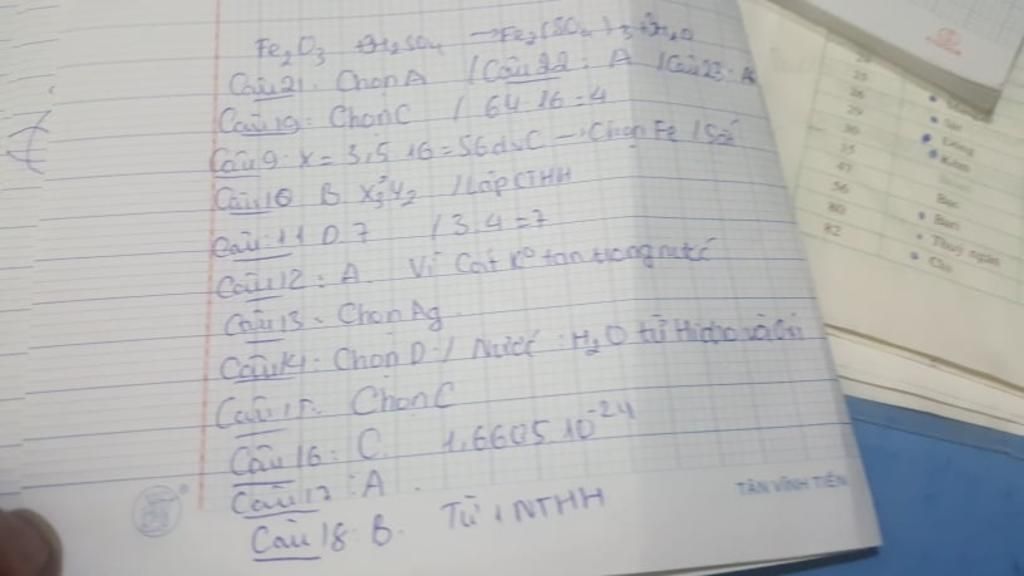 Fe2O3 +3H2SO4 → Fe2(SO4)3 + 3H2O
Câu 21. Chọn A / Câu 22: A / Câu 23: A
Câu 19: Chọn C / 64:16=4
Câu 9: X = 3,5.16=56 đvC → Chọn Fe / Sắt
Câu 10 B X3Y2 / Lập CTHH
Câu 11 D.7 / 3,4=7
Câu 12: A. Vì Cát K° tan trong nước
Câu 13. Chọn Ag
Câu 14: Chọn D / Nước: H2O từ
Câu 15. Chọn C
Câu 16: C. 1,6605.10-24
Câu 17: A.
Câu 18: B. Từ 1 NTHH
TÂN VĨNH TIẾN
24
25
26
29
30
35
47
56
80
82
Đồng
Kẽm
Bạc
Bari
Thuỷ ngân
Chì